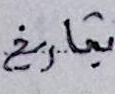 بتاريخ